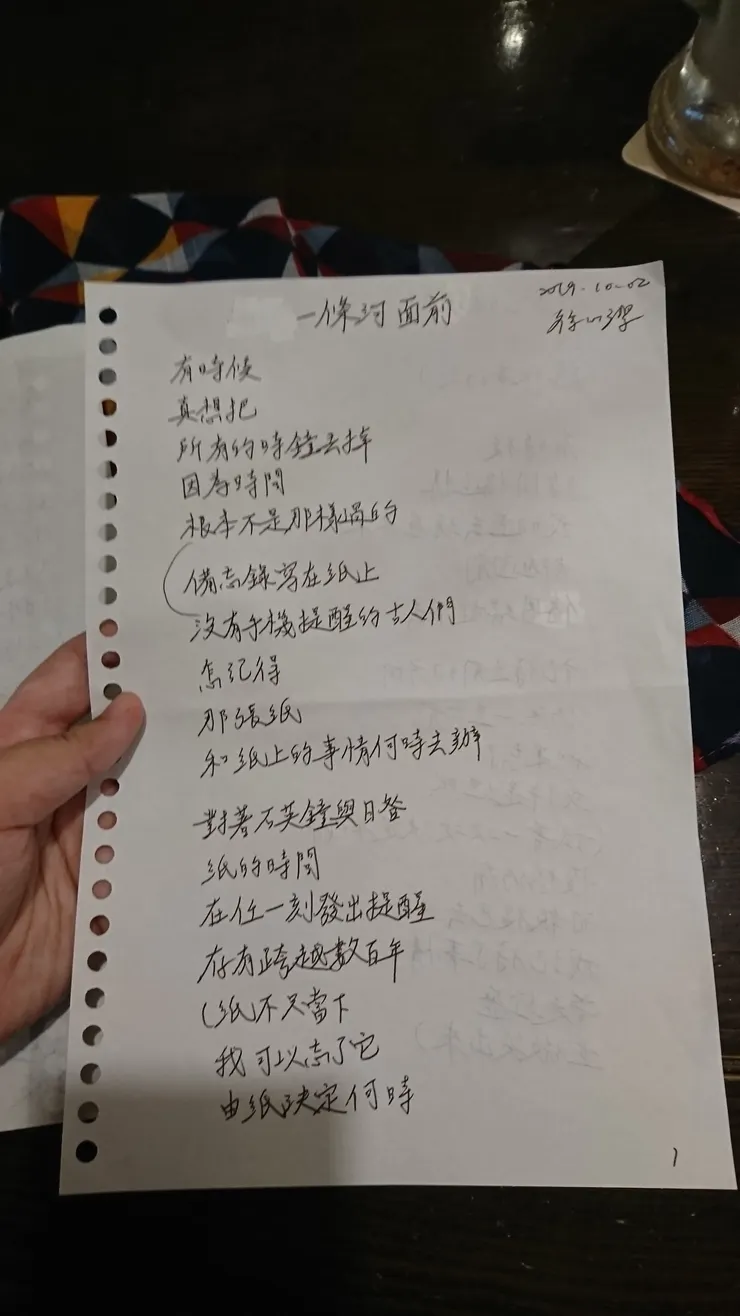 一條河面前
2019.10.02
有時候
真想把
所有的時鐘丟掉
因為時間
根本不是那樣過的
備忘錄寫在紙上
沒有手機提醒的古人們
怎記得
那張紙
和紙上的事情何時去辦
對著石英鐘與日晷
紙的時間
在任一刻發出提醒
存有跨越數百年
(紙不只當下
我可以忘了它
由紙決定何時
1